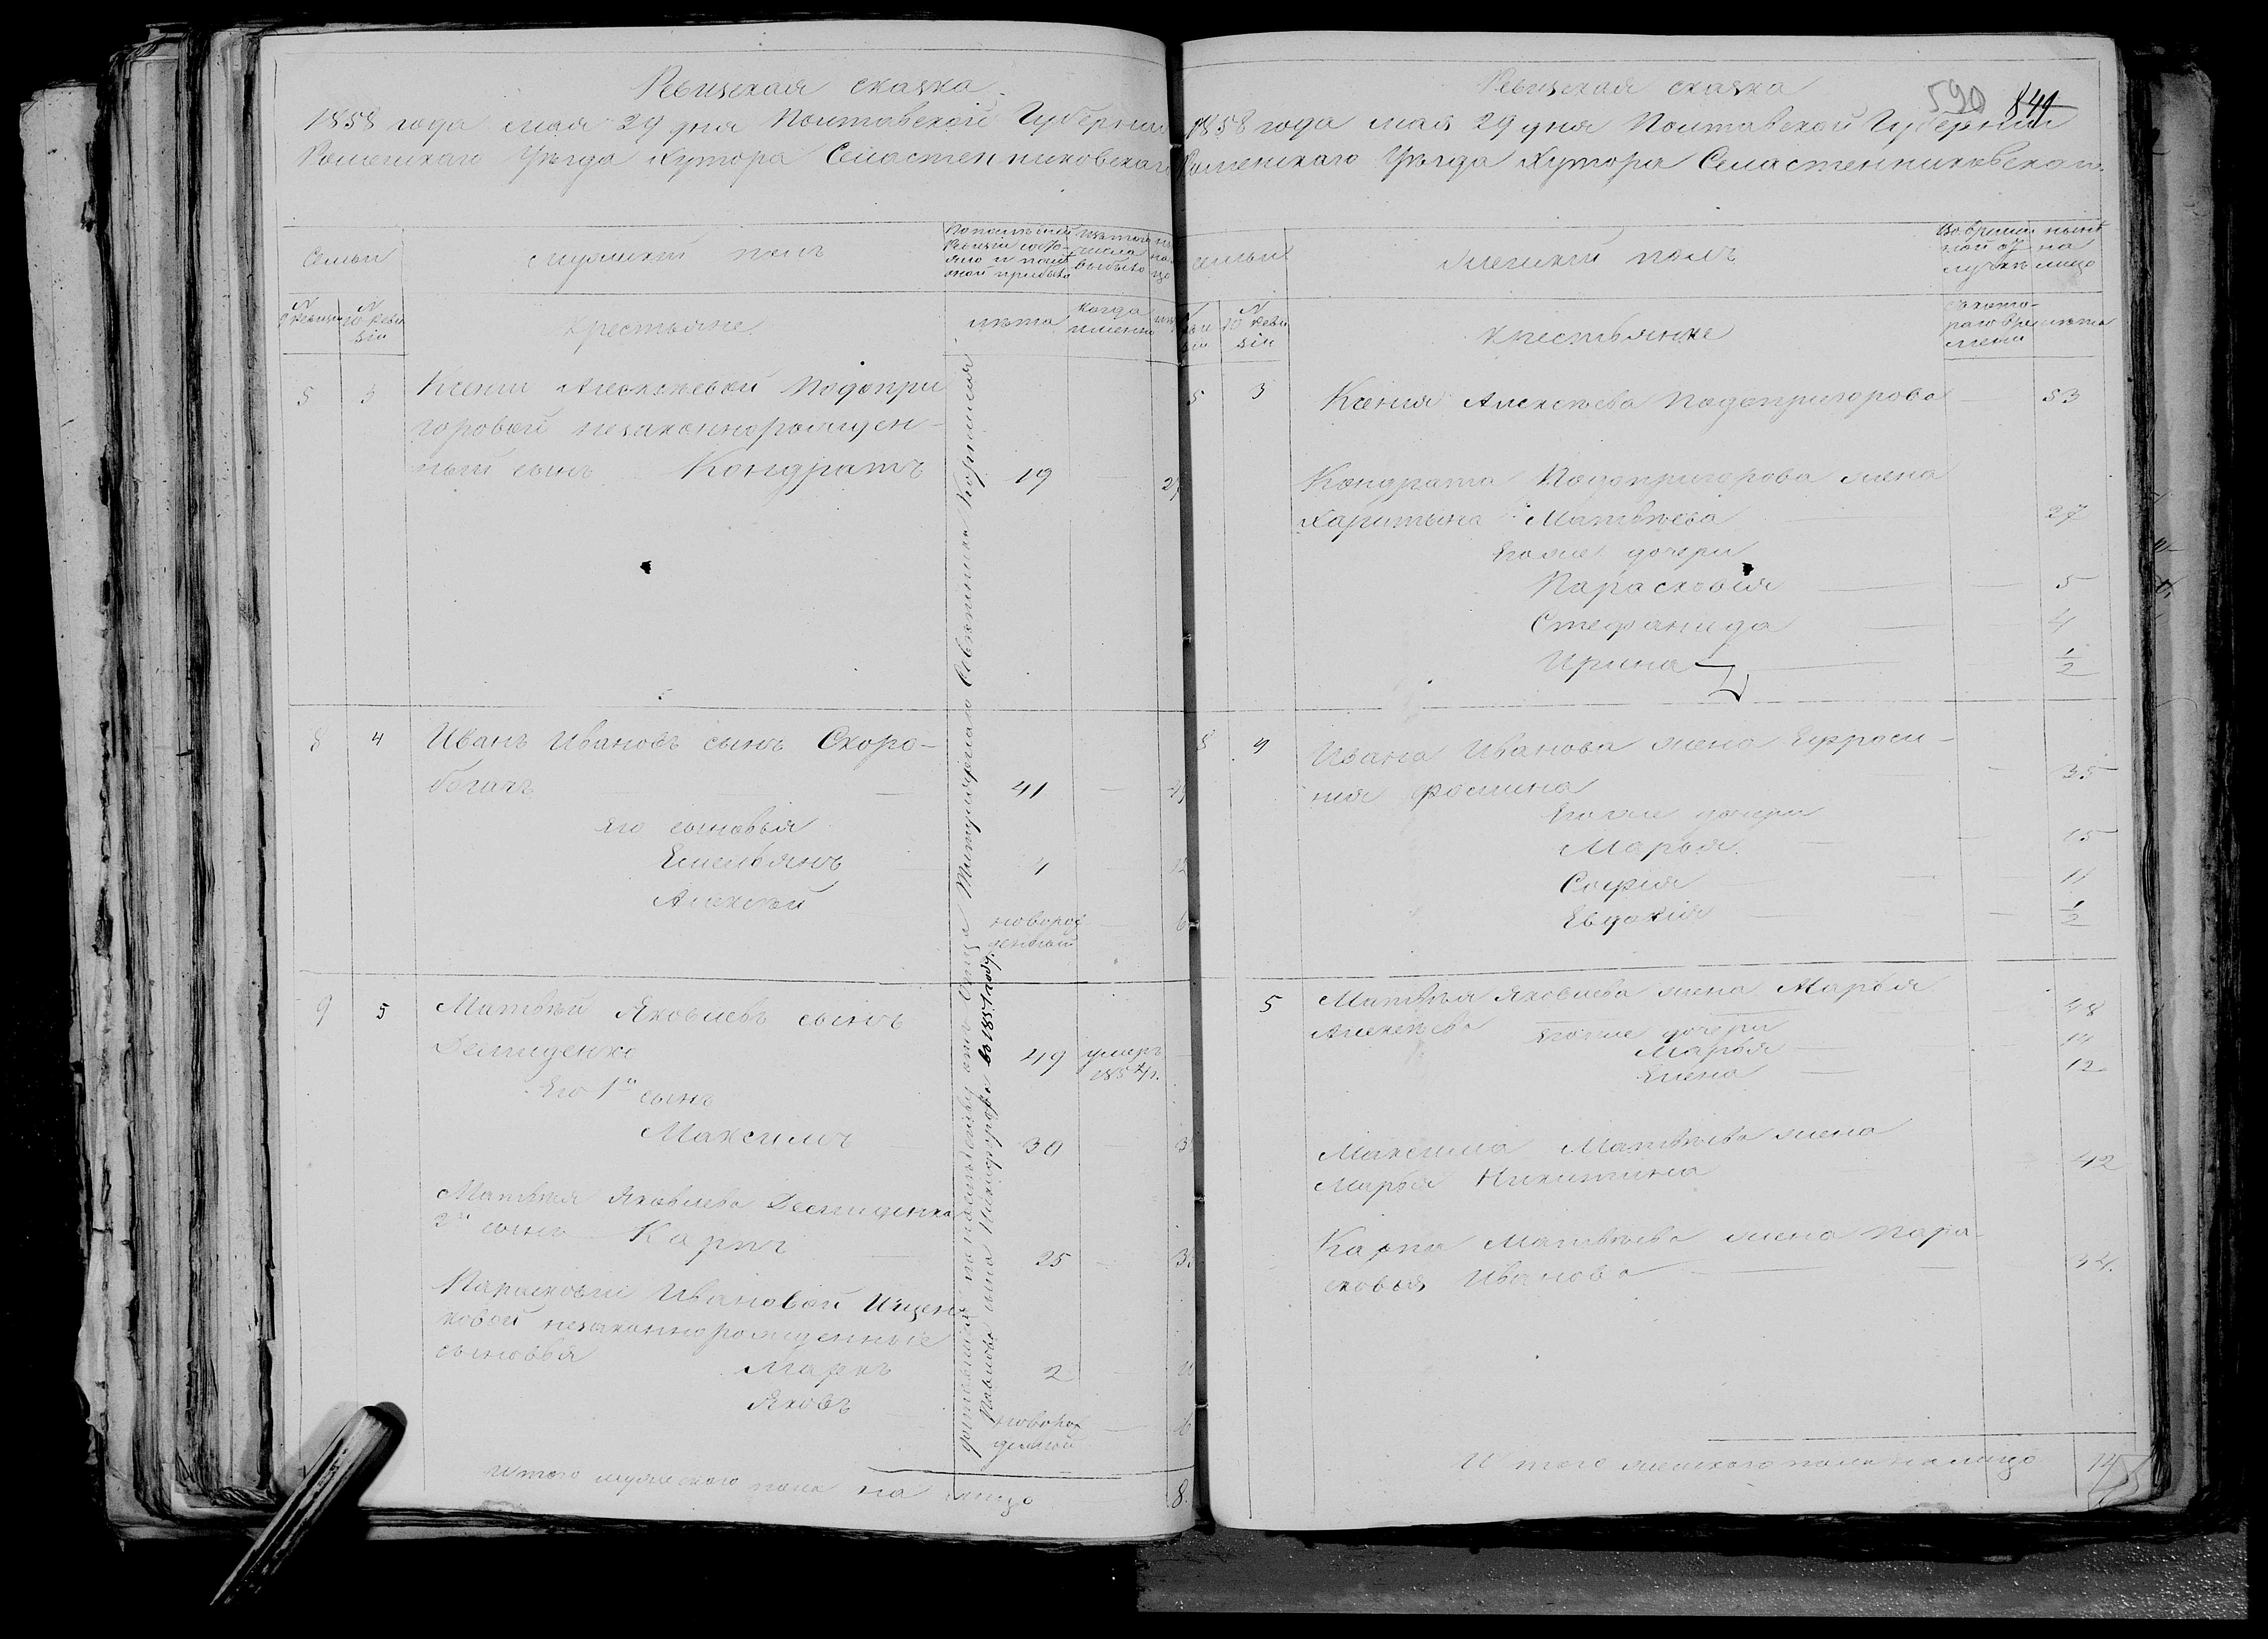 Ревизская сказка
1858 года мая 29 дня Полтавской Губернии
Роменскаго Уѣзда Хутора Семастенниковскаго
Семьи
мужескій полъ
По послѣдней
Ревизіи состо-
яло и послѣ
оной прибыло
Изъ того
числа
выбыло
N
9 Ревизіи
N
10 Реви
зіи
Крестьяне
лѣта
когда
именно
5 3 Ксеніи Алексѣевой Подопри
горовой незаконнорожден-
ный сынъ Кондратъ 19 27
8 4 Иванъ Ивановъ сынъ Скоро-
богачъ 41
Его сыновья
Емельянъ 4 12
Алексѣй новорож
денный 6
9 5 Матвѣй Яковлевъ сынъ
Демиденко 49 умеръ
1854 г.
Его 1й сынъ
Максимъ 30
Матвѣя Яковлева Демиденка
2й сынъ Карпъ 25
Парасковьи Ивановой Ищен
ковой незаконнорожденные
сыновья
Маркъ 2
Яковъ новорож
денной
Итого мужескаго пола на лицо 8.
отъ отца Титулярнаго Совѣтника
Павлова сына Никифорова во 1857 году.
Ревизская сказка
590 841
1858 года мая 29 дня Полтавской Губерніи
Роменскаго Уѣзда Хутора Семастенниковскаго
семьи
женскій полъ
Во времен
ной от
лучкѣ
нынѣ
на
лицо
N
10 Реви
зіи
крестьянке
съ кото-
раго вре
мени
лѣта
5 3 Ксенія Алексѣева Подопригорова 53
Кондрата Подопригорова жена
Харитына Матвѣева 27
Его же дочери
Парасковія 5
Стефанида 4
Ирина 1/2
8 4 Ивана Иванова жена Ефроси-
нія Фомина 35
Его же дочери
Марья 15
Софія 11
Евдокія 1/2
5 Матвѣя Яковлева жена Марья
Алексѣева 48
Его же дочери
Марья 14
Елена 12
Максима Матвѣева жена
Марья Никитина 42
Карпа Матвѣева жена Пара-
сковья Иванова 34
Итого женскаго пола на лицо 14